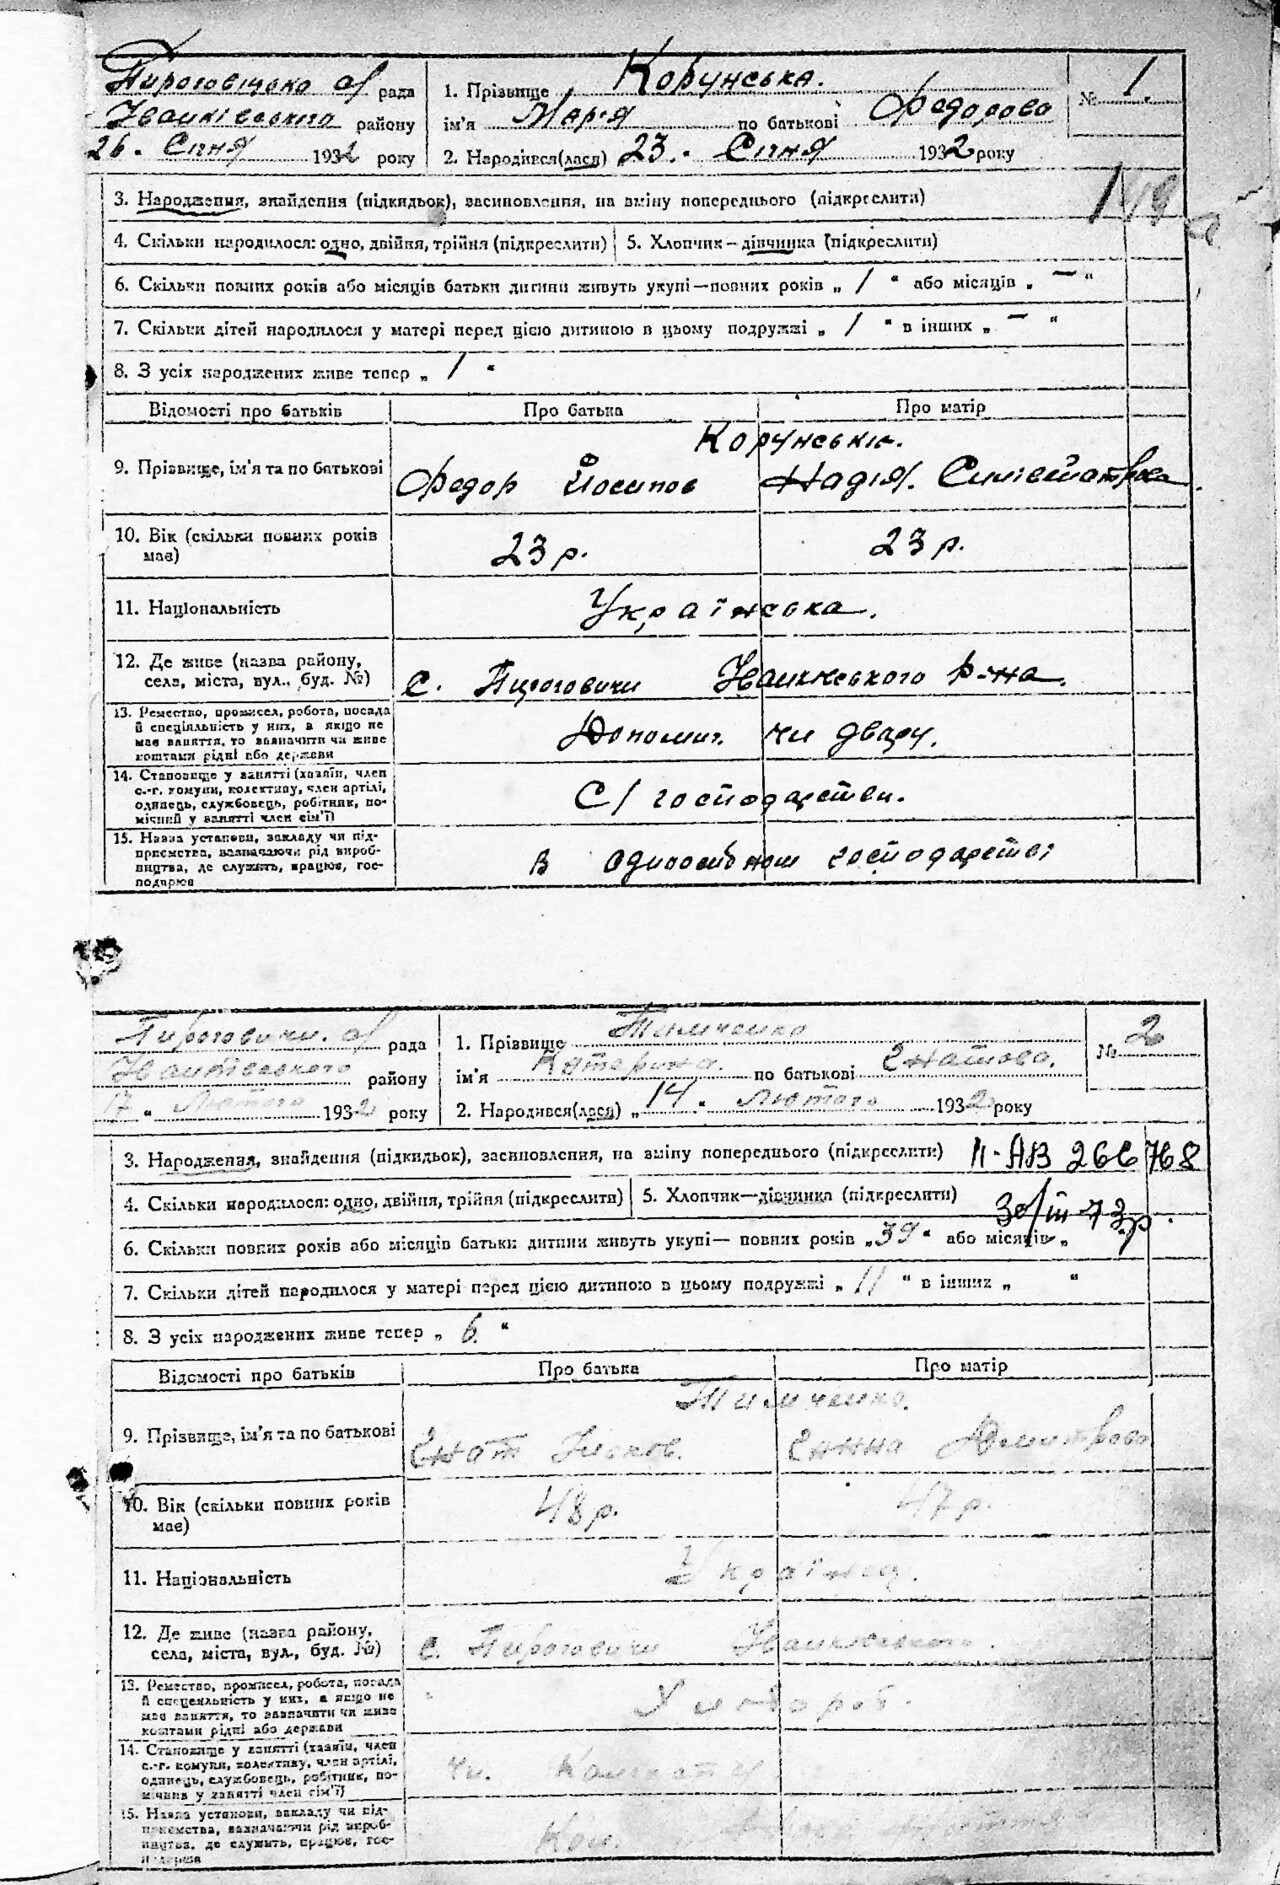 Пироговицько с/ рада
Іванківського району
26. Січня 1932 року
1. Прізвище Корунська.
ім'я Марія по батькові Федорова
2. Народився(лася) 23. Січня 1932 року
№ 1.
149
3. Народження, знайдення (підкидьок), засиновлення, на зміну попереднього (підкреслити)
4. Скільки народилося: одно, двійня, трійня (підкреслити) 5. Хлопчик – дівчинка (підкреслити)
6. Скільки повних років або місяців батьки дитини живуть укупі—повних років „ 1 “ або місяців „ — “
7. Скільки дітей народилося у матері перед цією дитиною в цьому подружжі „ 1 “ в інших „ — “
8. З усіх народжених живе тепер „ 1 “
Відомості про батьків Про батька Про матір
Корунські.
9. Прізвище, ім'я та по батькові Федор Йосипов Надія.
10. Вік (скільки повних років має) 23 р. 23 р.
11. Національність Українська.
12. Де живе (назва району,
села, міста, вул., буд. №) с. Пироговичи Іванківського р-на.
13. Ремество, промисел, робота, посада
й спеціяльність у них, а якщо не
має заняття, то зазначити чи живе
коштами рідні або держави
Допомиг. чл двару.
14. Становище у занятті (хазяїн, член
с.-г. комуни, колективу, член артілі,
одинець, службовець, робітник, по-
мічний у занятті член сім'ї)
С/ господарствен.
15. Назва установи, закладу чи під-
приємства, зазначаючи рід вироб-
ництва, де служить, працює, гос-
подарює
в господарстві
Пироговичи. с/ рада
Іванківського району
17 „ Лютого 1932 року
1. Прізвище Тимченко
ім'я Катерина. по батькові Єнатова.
2. Народився(лася) „ 14 “ Лютого 1932 року
№ 2
3. Народження, знайдення (підкидьок), засиновлення, на зміну попереднього (підкреслити) II-АВ 266768
4. Скільки народилося: одно, двійня, трійня (підкреслити) 5. Хлопчик—дівчинка (підкреслити)
30/III-73р.
6. Скільки повних років або місяців батьки дитини живуть укупі— повних років „39“ або місяців „
7. Скільки дітей народилося у матері перед цією дитиною в цьому подружжі „ 11 “ в інших „ “
8. З усіх народжених живе тепер „ 6 “
Відомості про батьків Про батька Про матір
Тимченко.
9. Прізвище, ім'я та по батькові Єнат Ганна Дмитрова
10. Вік (скільки повних років
має) 48 р. 47 р.
11. Національність Українці.
12. Де живе (назва району,
села, міста, вул., буд. №) с. Пироговичи Іванківського.
13. Ремество, промисел, робота, посада
й спеціяльність у них, а якщо не
має заняття, то зазначити чи живе
коштами рідні або держави
14. Становище у занятті (хазяїн, член
с.-г. комуни, колективу, член артілі,
одинець, службовець, робітник, по-
мічник у занятті член сім'ї)
чл.
15. Назва установи, закладу чи під-
приємства, зазначаючи рід вироб-
ництва, де служить, працює, гос-
подарює